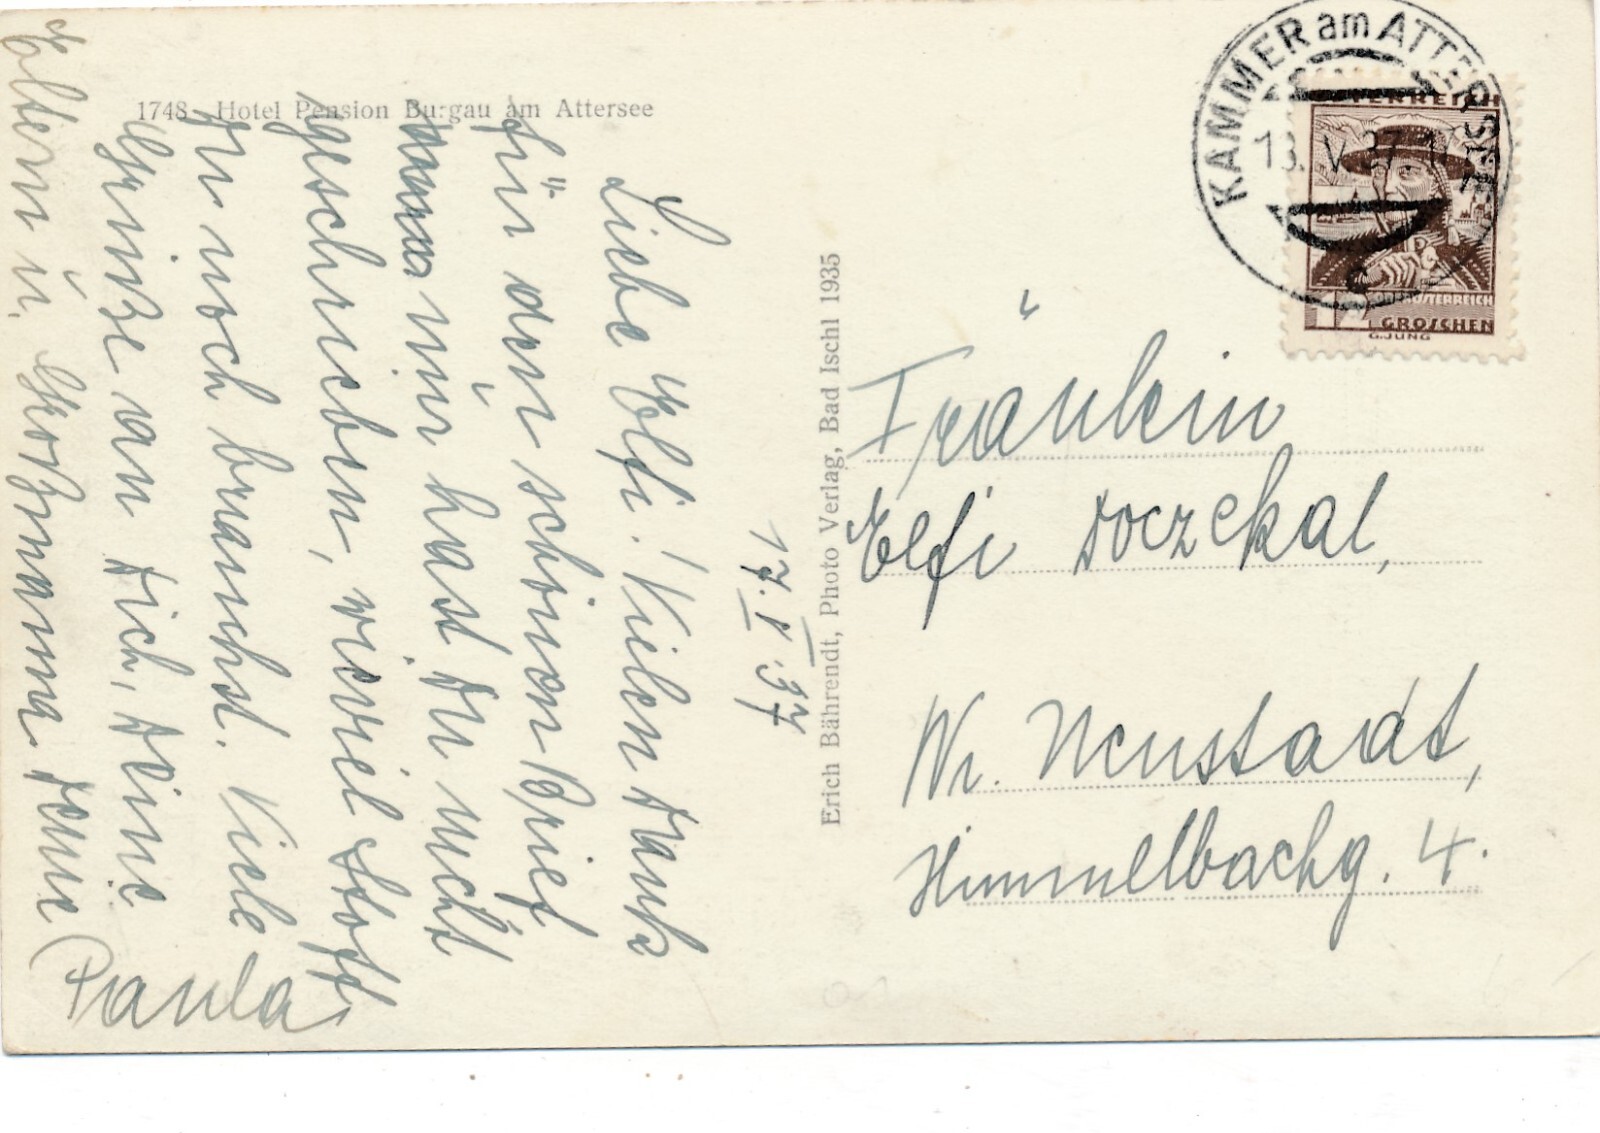 1748 Hotel Pension Burgau am Attersee
17. V. 37
Liebe Elfi! Vielen Dank
für den schönen Brief
nur hast Du nicht
geschrieben, wieviel Stoff
Du noch brauchst. Viele
Grüße an Dich, Deine
Eltern u. Großmama Deine
Paula
Erich Bährendt, Photo Verlag, Bad Ischl 1935
KAMMER am ATTERSEE
13. V. 37
ÖSTERREICH
12 GROSCHEN
G.JUNG
Fräulein
Elfi Doczekal,
Wr. Neustadt,
Himmelbachg. 4.